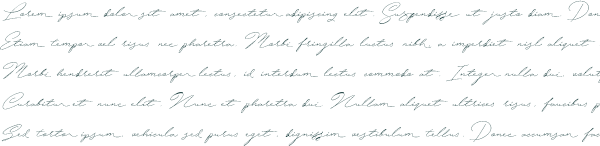 Lorem ipsum dolor sit amet, consectetur adipiscing elit. Suspendisse ut justo diam. Don
Etiam tempor vel risus nec pharetra. Morbi fringilla luctus nibh, a imperdiet nisl aliquet
Morbi hendrerit ullamcorper lectus, id interdum lectus commodo at. Integer nulla dui, volut
Curabitur et nunc elit. Nunc et pharetra dui. Nullam aliquet ultrices risus, faucibus p
Sed tortor ipsum, vehicula sed purus eget, dignissim vestibulum tellus. Donec accumsan fau